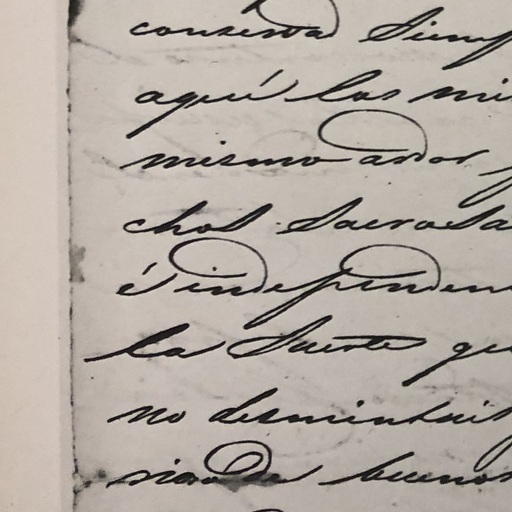 conserva siemp
aquí las mis
mismo ardor
chos sacrosa
é independen
la suerte que
no desmintáis
de buenos